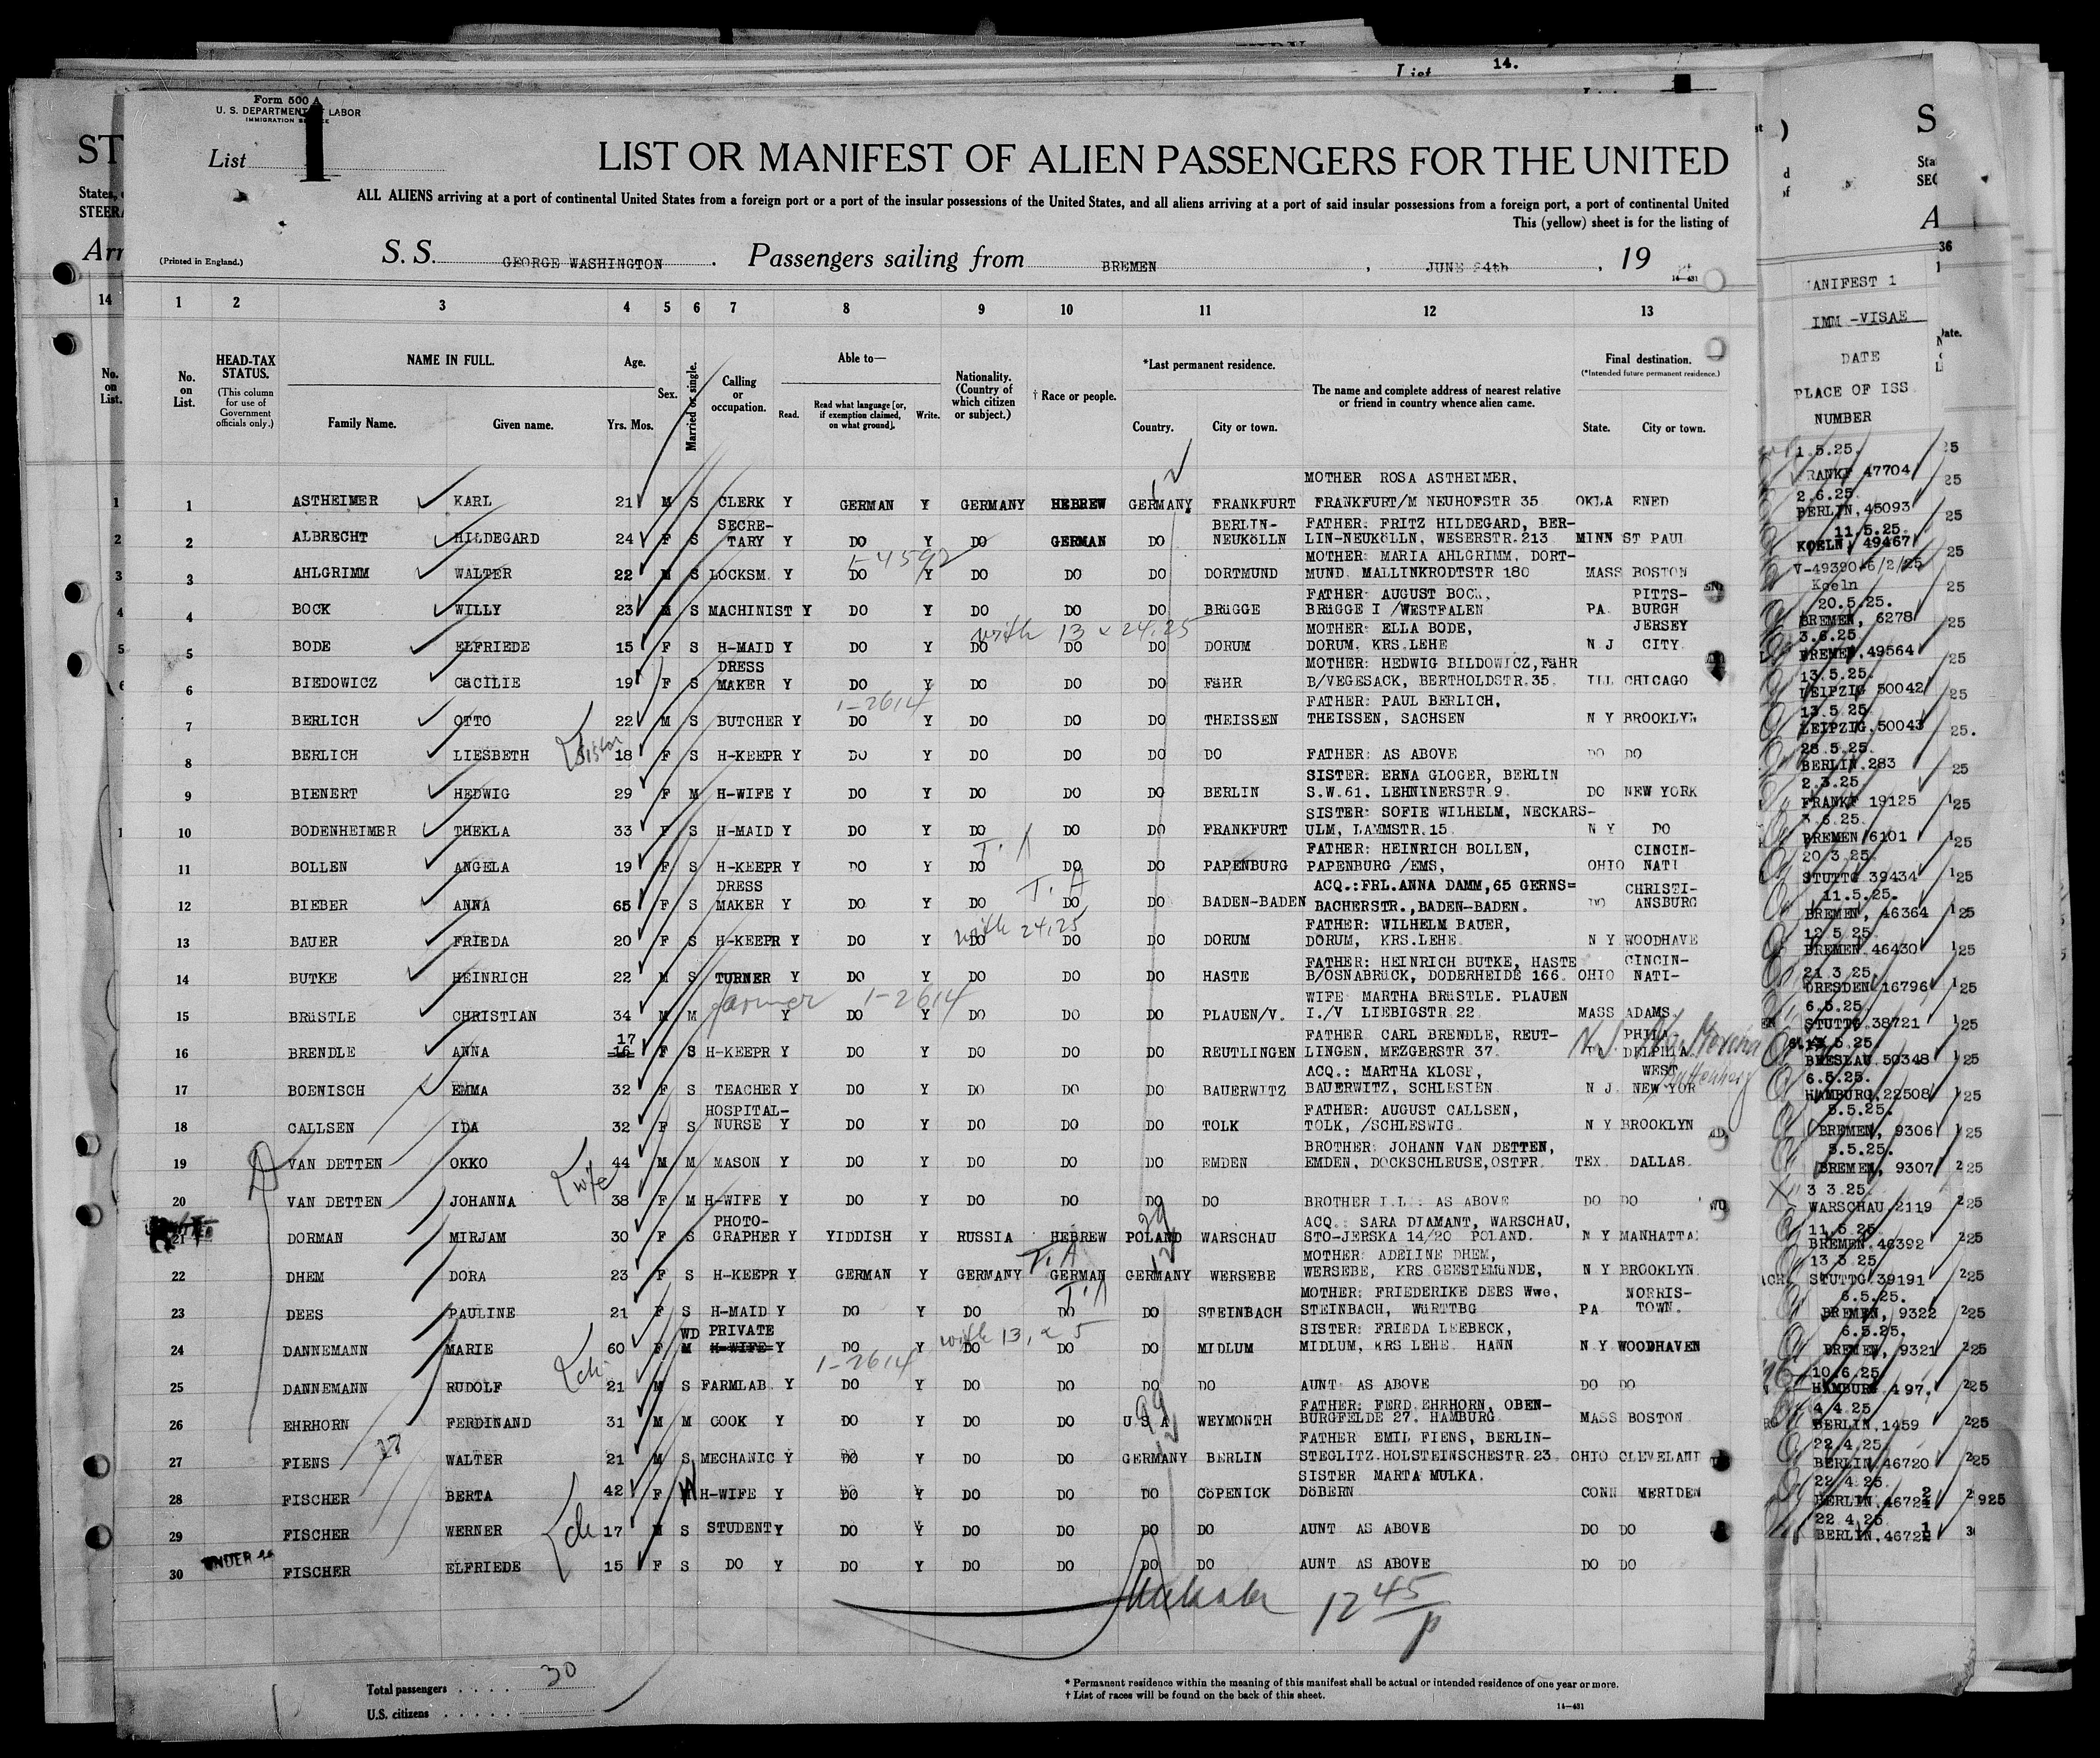 List 14.
Form 500 A
U. S. DEPARTMENT OF LABOR
IMMIGRATION SERVICE
List 1
LIST OR MANIFEST OF ALIEN PASSENGERS FOR THE UNITED
ALL ALIENS arriving at a port of continental United States from a foreign port or a port of the insular possessions of the United States, and all aliens arriving at a port of said insular possessions from a foreign port, a port of continental United
This (yellow) sheet is for the listing of
(Printed in England.)
S. S. GEORGE WASHINGTON. Passengers sailing from BREMEN, JUNE 24th, 19
1 2 3 4 5 6 7 8 9 10 11 12 13
No. on List.
HEAD-TAX STATUS.
(This column for use of Government officials only.)
NAME IN FULL.
Family Name. Given name.
Age.
Yrs. Mos.
Sex.
Married or single.
Calling or occupation.
Able to—
Read. Read what language [or, if exemption claimed, on what ground]. Write.
Nationality. (Country of which citizen or subject.)
† Race or people.
*Last permanent residence.
Country. City or town.
The name and complete address of nearest relative or friend in country whence alien came.
Final destination.
(*Intended future permanent residence.)
State. City or town.
1 ASTHEIMER KARL 21 M S CLERK Y GERMAN Y GERMANY HEBREW GERMANY FRANKFURT MOTHER ROSA ASTHEIMER, FRANKFURT/M NEUHOFSTR 35 OKLA ENED
2 ALBRECHT HILDEGARD 24 F S SECRE-TARY Y DO Y DO GERMAN DO BERLIN-NEUKöLLN FATHER: FRITZ HILDEGARD, BER-LIN-NEUKöLLN, WESERSTR.213 MINN ST PAUL
1-4592
3 AHLGRIMM WALTER 22 M S LOCKSM. Y DO Y DO DO DO DORTMUND MOTHER: MARIA AHLGRIMM, DORT-MUND, MALLINKRODTSTR 180 MASS BOSTON
4 BOCK WILLY 23 M S MACHINIST Y DO Y DO DO DO BRüGGE FATHER: AUGUST BOCK, BRüGGE I /WESTFALEN PA. PITTS-BURGH
with 13 & 24.25
5 BODE ELFRIEDE 15 F S H-MAID Y DO Y DO DO DO DORUM MOTHER: ELLA BODE, DORUM, KRS.LEHE N J JERSEY CITY
6 BIEDOWICZ CäCILIE 19 F S DRESS MAKER Y DO Y DO DO DO FäHR MOTHER: HEDWIG BILDOWICZ,FäHR B/VEGESACK, BERTHOLDSTR.35. ILL CHICAGO
1-2614
7 BERLICH OTTO 22 M S BUTCHER Y DO Y DO DO DO THEISSEN FATHER: PAUL BERLICH, THEISSEN, SACHSEN N Y BROOKLYN
8 BERLICH LIESBETH sister 18 F S H-KEEPR Y DO Y DO DO DO DO FATHER: AS ABOVE DO DO
9 BIENERT HEDWIG 29 F M H-WIFE Y DO Y DO DO DO BERLIN SISTER: ERNA GLOGER, BERLIN S.W.61, LEHNINERSTR.9. DO NEW YORK
10 BODENHEIMER THEKLA 33 F S H-MAID Y DO Y DO DO DO FRANKFURT SISTER: SOFIE WILHELM, NECKARS-ULM, LAMMSTR.15 N Y DO
T. A
11 BOLLEN ANGELA 19 F S H-KEEPR Y DO Y DO DO DO PAPENBURG FATHER: HEINRICH BOLLEN, PAPENBURG /EMS, OHIO CINCIN-NATI
T. A
12 BIEBER ANNA 65 F S DRESS MAKER Y DO Y DO DO DO BADEN-BADEN ACQ.:FRL.ANNA DAMM,65 GERNS=BACHERSTR.,BADEN-BADEN. DO CHRISTI-ANSBURG
with 24.25
13 BAUER FRIEDA 20 F S H-KEEPR Y DO Y DO DO DO DORUM FATHER: WILHELM BAUER, DORUM, KRS.LEHE N Y WOODHAVE
14 BUTKE HEINRICH 22 M S TURNER Y DO Y DO DO DO HASTE FATHER: HEINRICH BUTKE, HASTE B/OSNABRüCK, DODERHEIDE 166. OHIO CINCIN-NATI-
farmer 1-2614
15 BRüSTLE CHRISTIAN 34 M M Y DO Y DO DO DO PLAUEN/V. WIFE MARTHA BRüSTLE. PLAUEN I./V LIEBIGSTR 22 MASS ADAMS.
16 BRENDLE ANNA 16 17 F S H-KEEPR Y DO Y DO DO DO REUTLINGEN FATHER CARL BRENDLE, REUT-LINGEN, MEZGERSTR 37. PHILA DELPHIA
17 BOENISCH EMMA 32 F S TEACHER Y DO Y DO DO DO BAUERWITZ ACQ.: MARTHA KLOSE, BAUERWITZ, SCHLESIEN N J. WEST NEW YOR
18 CALLSEN IDA 32 F S HOSPITAL-NURSE Y DO Y DO DO DO TOLK FATHER: AUGUST CALLSEN, TOLK, /SCHLESWIG. N Y BROOKLYN
19 VAN DETTEN OKKO 44 M M MASON Y DO Y DO DO DO EMDEN BROTHER: JOHANN VAN DETTEN, EMDEN, DOCKSCHLEUSE,OSTFR. TEX. DALLAS.
20 VAN DETTEN JOHANNA wife 38 F M H-WIFE Y DO Y DO DO DO DO BROTHER I.L.: AS ABOVE DO DO
21 DORMAN MIRJAM 30 F S PHOTO-GRAPHER Y YIDDISH Y RUSSIA HEBREW POLAND WARSCHAU ACQ.: SARA DIAMANT, WARSCHAU, STO-JERSKA 14/20 POLAND. N Y MANHATTA
T. A
22 DHEM DORA 23 F S H-KEEPR Y GERMAN Y GERMANY GERMAN GERMANY WERSEBE MOTHER: ADELINE DHEM, WERSEBE, KRS GEESTEMüNDE, N Y BROOKLYN.
T. A
23 DEES PAULINE 21 F S H-MAID Y DO Y DO DO DO STEINBACH MOTHER: FRIEDERIKE DEES Wwe, STEINBACH, WüRTTBG PA NORRIS-TOWN.
with 13, & 5
24 DANNEMANN MARIE 60 F M WD H-WIFE PRIVATE Y DO Y DO DO DO MIDLUM SISTER: FRIEDA LEEBECK, MIDLUM, KRS LEHE. HANN N.Y. WOODHAVEN
1-2614
25 DANNEMANN RUDOLF ch 21 M S FARMLAB. Y DO Y DO DO DO DO AUNT: AS ABOVE DO DO
26 EHRHORN FERDINAND 31 M M COOK Y DO Y DO DO U S A WEYMONTH FATHER: FERD.EHRHORN, OBEN-BURGFELDE 27. HAMBURG MASS BOSTON
27 FIENS WALTER 21 M S MECHANIC Y DO Y DO DO GERMANY BERLIN FATHER EMIL FIENS, BERLIN-STEGLITZ.HOLSTEINSCHESTR.23. OHIO CLEVELAND
28 FISCHER BERTA 42 F W H-WIFE Y DO Y DO DO DO CöPENICK SISTER MARTA MULKA. DöBERN CONN MERIDEN
29 FISCHER WERNER ch 17 M S STUDENT Y DO Y DO DO DO DO AUNT AS ABOVE DO DO
UNDER 16
30 FISCHER ELFRIEDE 15 F S DO Y DO Y DO DO DO DO AUNT AS ABOVE DO DO
12 45/p
Total passengers . . . . 30
U.S. citizens . . . . .
* Permanent residence within the meaning of this manifest shall be actual or intended residence of one year or more.
† List of races will be found on the back of this sheet.
14—431
MANIFEST 1
IMM -VISAE
DATE
PLACE OF ISS
NUMBER
1.5.25.
FRANKF 47704
2.6.25.
BERLIN,45093
11.5.25.
KOELN, 49467
V-49390 6/2/25
Koeln
20.5.25.
BREMEN, 6278
3.6.25.
BREMEN,49564
13.5.25.
LEIPZIG 50042
13.5.25.
LEIPZIG,50043
28.5.25.
BERLIN.283
2.3.25.
FRANKF 19125
3.6.25.
BREMEN 6101
20.3.25.
STUTTG 39434
11.5.25.
BREMEN, 46364
12.5.25.
BREMEN 46430
21.3.25.
DRESDEN 16796
6.5.25.
STUTTG.38721
13.5.25.
BRESLAU 50348
6.5.25.
HAMBURG,22508
5.5.25.
BREMEN, 9306
5.5.25.
BREMEN, 9307
3 3.25.
WARSCHAU 2119
11.5.25.
BREMEN.46392
13.3.25
STUTTG.39191
6.5.25.
BREMEN, 9322
6.5.25.
BREMEN, 9321
10.6.25.
HAMBURG 497.
4 4.25
BERLIN,1459
22.4.25.
BERLIN.46720
22.4.25.
BERLIN,46721
22.4.25.
BERLIN,46722